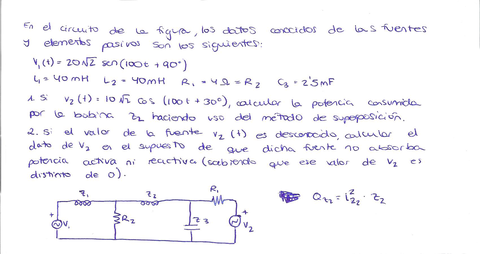 En el circuito de la figura, los datos conocidos de las fuentes
y elementos pasivos son los siguientes:
V₁(t) = 20√2 sen (100t + 90°)
L₁ = 40mH L₂ = 40mH R₁ = 4Ω = R₂ C₃ = 2'5mF
1. Si v₂(t) = 10√2 cos (100t + 30°), calcular la potencia consumida
por la bobina Z₂ haciendo uso del método de superposición.
2. Si el valor de la fuente v₂(t) es desconocido, calcular el
dato de V₂ en el supuesto de que dicha fuente no absorba
potencia activa ni reactiva (sabiendo que ese valor de V₂ es
distinto de 0).
Z₁ Z₂ R₁
+ V₁ R₂ Z3 + V₂
Q_Z₂ = i²_Z₂ · Z₂